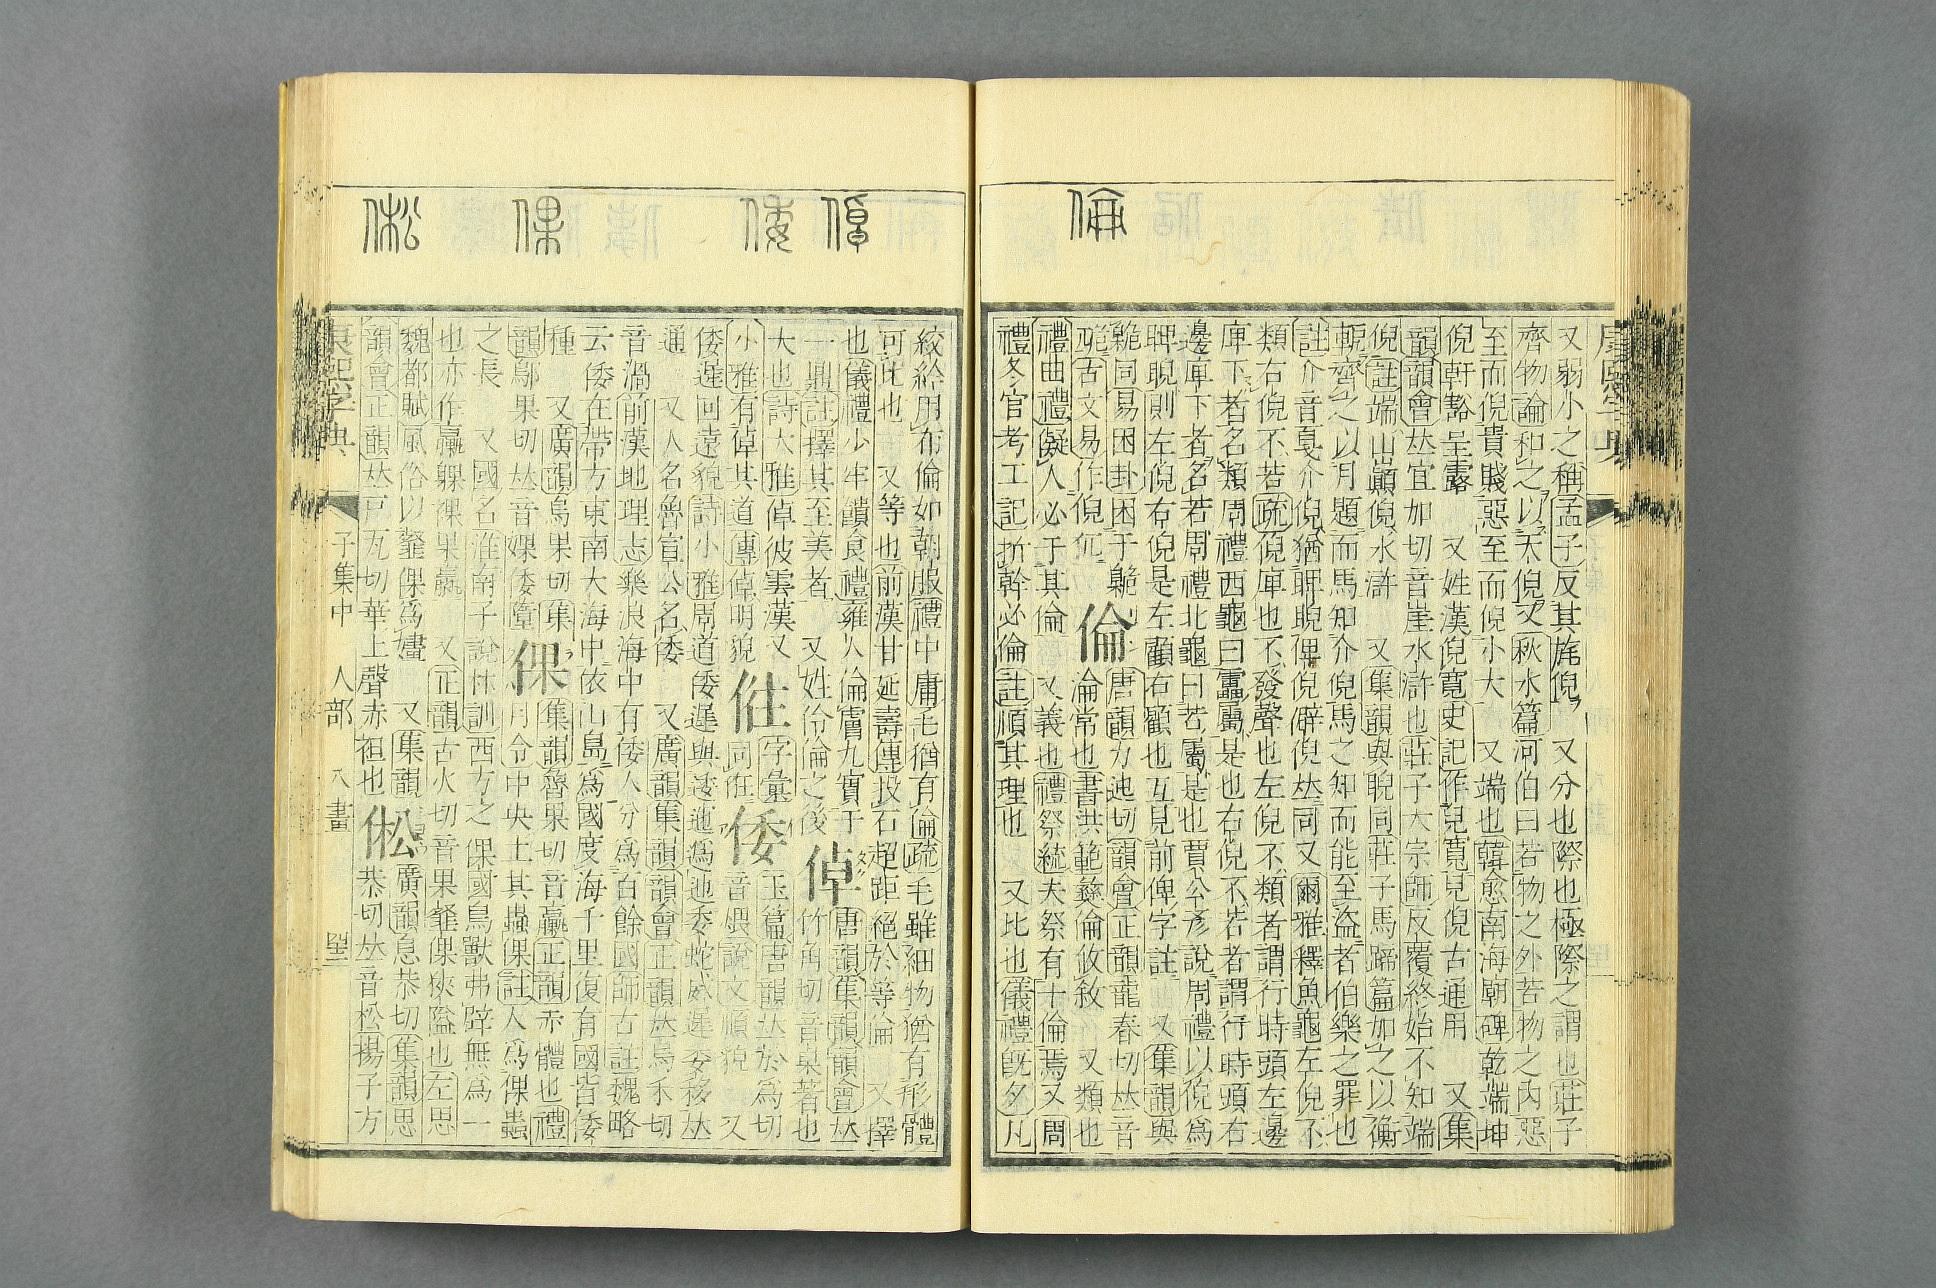 倫
又弱小之稱孟子反其旄倪 又分也際也極際之謂也莊子
齊物論和之以天倪又秋水篇河伯曰若物之外若物之內惡
至而倪貴賤惡至而倪小大 又端也韓愈南海廟碑乾端坤
倪軒豁呈露 又姓漢倪寬史記作兒寬兒倪古通用 又集
韻韻會𠀤宜加切音崖水滸也莊子大宗師反覆終始不知端
倪註端山巔倪水滸 又集韻與睨同莊子馬蹄篇加之以衡
軛齊之以月題而馬知介倪馬之知而能至盜者伯樂之罪也
註介音戛介倪猶睥睨俾倪僻倪𠀤同又爾雅釋魚龜左倪不
類右倪不若疏倪庳也不發聲也左倪不類者謂行時頭左邊
庳下者名類周禮西龜曰靁屬是也右倪不若者謂行時頭右
邊庳下者名若周禮北龜曰若屬是也賈公彥說周禮以倪爲
睥睨則左倪右倪是左顧右顧也互見前俾字註 又集韻與
臲同易困卦困于臲 唐韻力迍切韻會正韻龍春切𠀤音
古文易作倪㐳 倫 淪常也書洪範彝倫攸敘 又類也
禮曲禮儗人必于其倫 又義也禮祭統夫祭有十倫焉又周
禮冬官考工記析幹必倫註順其理也 又比也儀禮旣夕凡
偆 倭 倮 倯
絞紟用布倫如朝服禮中庸毛猶有倫疏毛雖細物猶有形體
可比也 又等也前漢甘延壽傳投石超距絕於等倫 又擇
也儀禮少牢饋食禮雍人倫膚九實于 倬 唐韻集韻韻會𠀤
一鼎註擇其至美者 又姓伶倫之後 竹角切音㭬著也
大也詩大雅倬彼雲漢又 倠 字彙 倭 玉篇唐韻𠀤於爲切
小雅有倬其道傳倬明貌 同俇 音煨說文順貌 又
倭遲回遠貌詩小雅周道倭遲與逶迤爲迆委蛇威遲委移𠀤
通 又人名魯宣公名倭 又廣韻集韻韻會正韻𠀤烏禾切
音渦前漢地理志樂浪海中有倭人分爲百餘國師古註魏略
云倭在帶方東南大海中依山島爲國度海千里復有國皆倭
種 又廣韻烏果切集 倮 集韻魯果切音臝正韻赤體也禮
韻鄔果切𠀤音婐倭墮 月令中央土其蟲倮註人爲倮蟲
之長 又國名淮南子說林訓西方之倮國鳥獸弗辟無爲一
也亦作臝躶裸果蠃 又正韻古火切音果雞倮狹隘也左思
魏都賦風俗以韰倮爲嫿 又集韻
韻會正韻𠀤戸瓦切華上聲赤袒也 倯 廣韻息恭切集韻思
恭切𠀤音松揚子方
康熙字典 子集中 人部 八畫